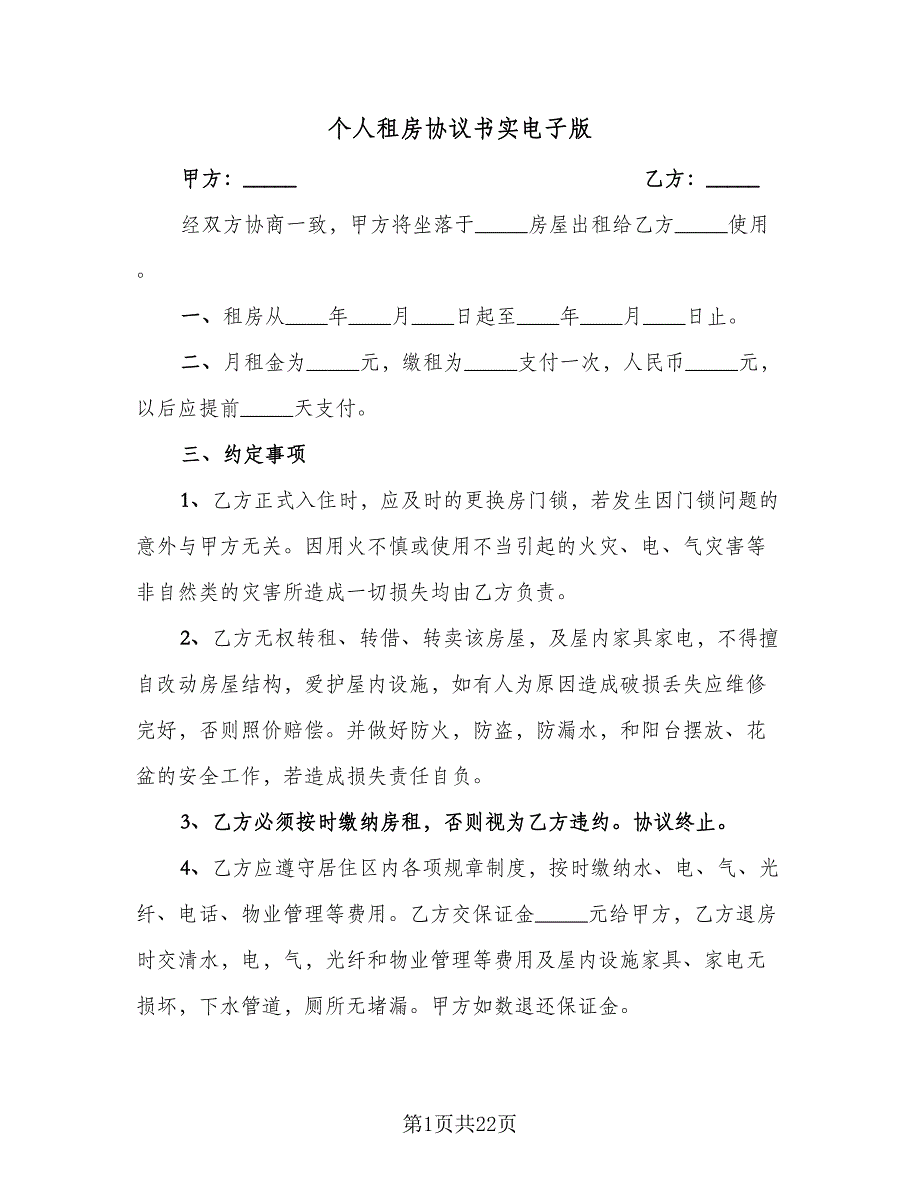 个人租房协议书实电子版
甲方：_____ 乙方：_____
经双方协商一致，甲方将坐落于_____房屋出租给乙方_____使用
。
一、租房从____年____月____日起至____年____月____日止。
二、月租金为_____元，缴租为_____支付一次，人民币_____元，
以后应提前_____天支付。
三、约定事项
1、乙方正式入住时，应及时的更换房门锁，若发生因门锁问题的
意外与甲方无关。因用火不慎或使用不当引起的火灾、电、气灾害等
非自然类的灾害所造成一切损失均由乙方负责。
2、乙方无权转租、转借、转卖该房屋，及屋内家具家电，不得擅
自改动房屋结构，爱护屋内设施，如有人为原因造成破损丢失应维修
完好，否则照价赔偿。并做好防火，防盗，防漏水，和阳台摆放、花
盆的安全工作，若造成损失责任自负。
3、乙方必须按时缴纳房租，否则视为乙方违约。协议终止。
4、乙方应遵守居住区内各项规章制度，按时缴纳水、电、气、光
纤、电话、物业管理等费用。乙方交保证金_____元给甲方，乙方退房
时交清水，电，气，光纤和物业管理等费用及屋内设施家具、家电无
损坏，下水管道，厕所无堵漏。甲方如数退还保证金。
第1页共22页